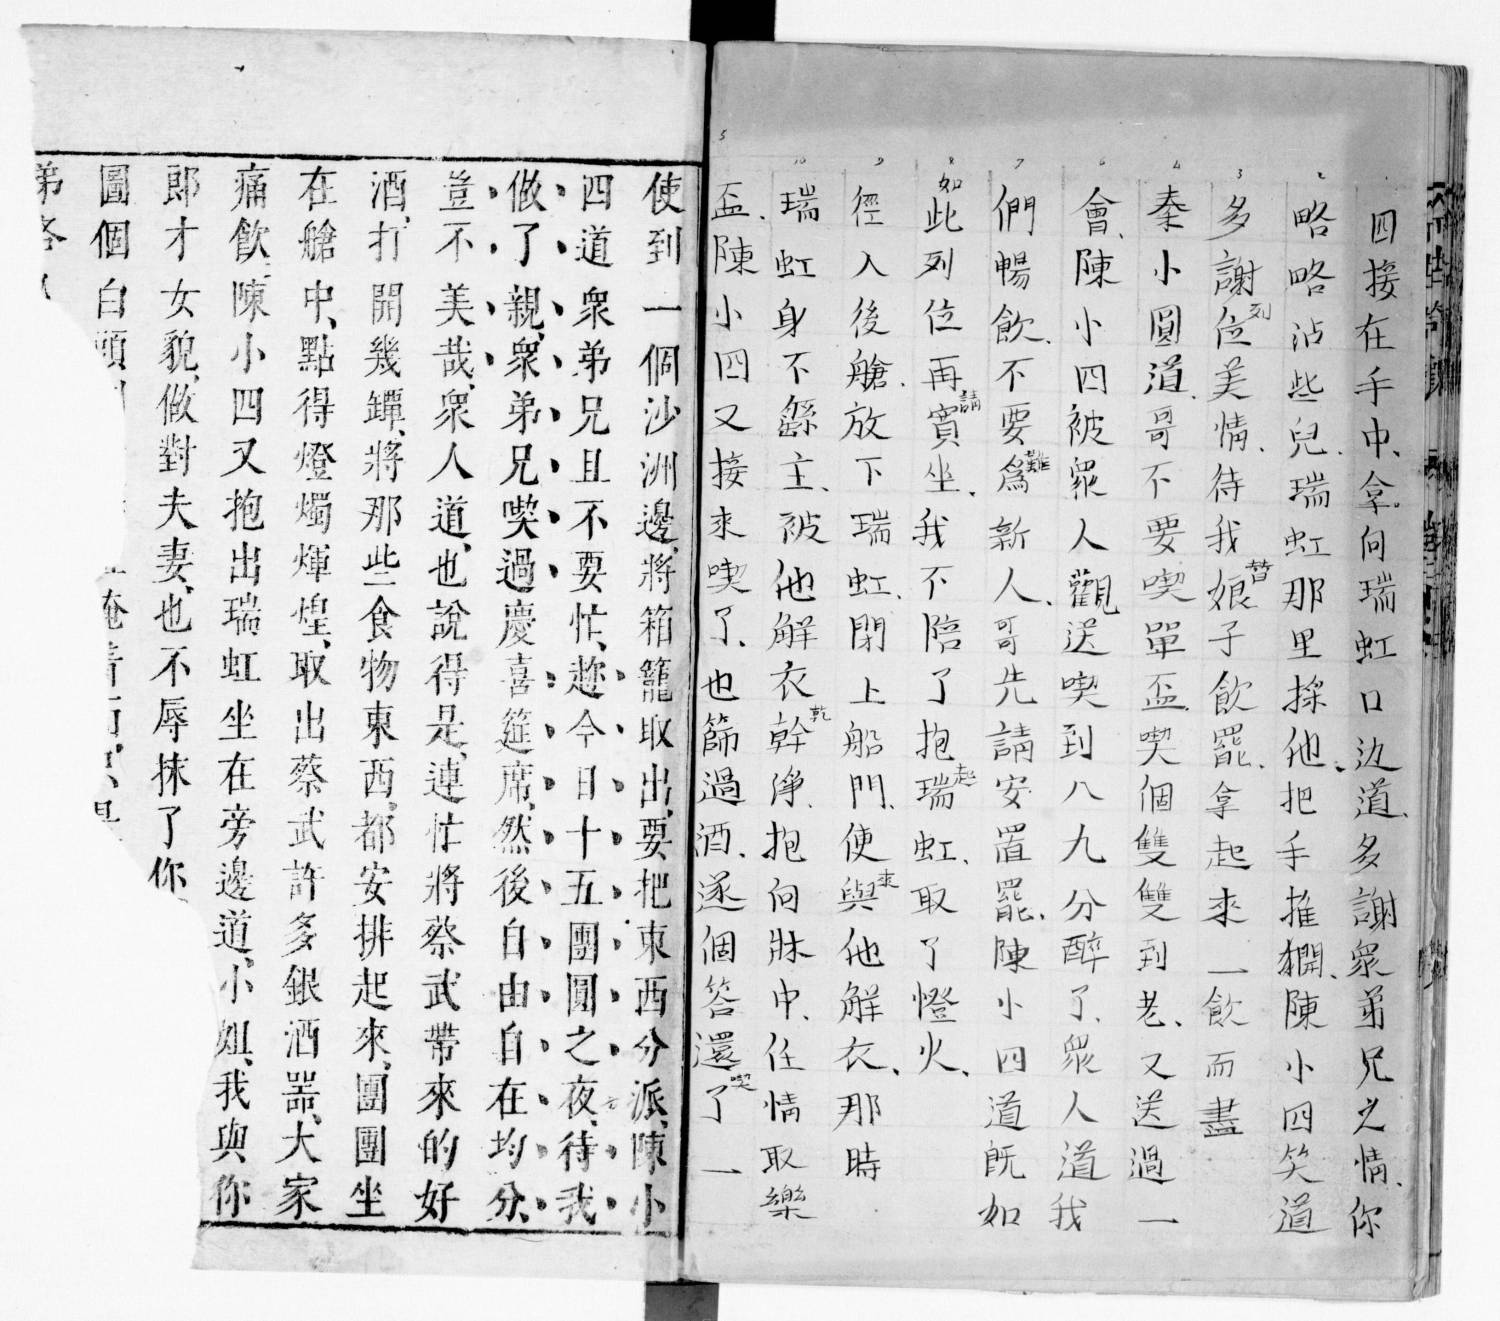 四接在手中、拿向瑞虹口边道、多謝眾弟兄之情、你
略略沾些兒、瑞虹那里採他、把手推開、陳小四笑道
多謝列位美情、待我替娘子飲罷、拿起來一飲而盡
秦小圓道、哥不要喫單盃、喫個雙雙到老、又送過一
會、陳小四被眾人觀送喫到八九分醉了、眾人道我
們暢飲、不要難爲新人、哥先請安置罷、陳小四道既如
如此列位再請寳坐、我不陪了抱起瑞虹、取了燈火、
徑入後艙、放下瑞虹、閉上船門、使與來他解衣、那時
瑞虹身不繇主、被他解衣乾幹淨、抱向牀中、任情取樂
盃、陳小四又接來喫了、也篩過酒、逐個答還喫了一
使到一個沙洲邊、將箱籠取出、要把東西分派、陳小
四道眾弟兄且不要忙、趂今日十五團圓之夜、待我
做了親、眾弟兄喫過慶喜筵席、然後自由自在均分、
豈不美哉、眾人道、也說得是、連忙將蔡武帶來的好
酒、打開幾罈、將那些食物東西、都安排起來、團團坐
在艙中、點得燈燭煇煌、取出蔡武許多銀酒噐、大家
痛飲、陳小四又抱出瑞虹坐在旁邊道、小姐、我與你
郎才女貌、做對夫妻、也不辱抹了你
圖個白頭